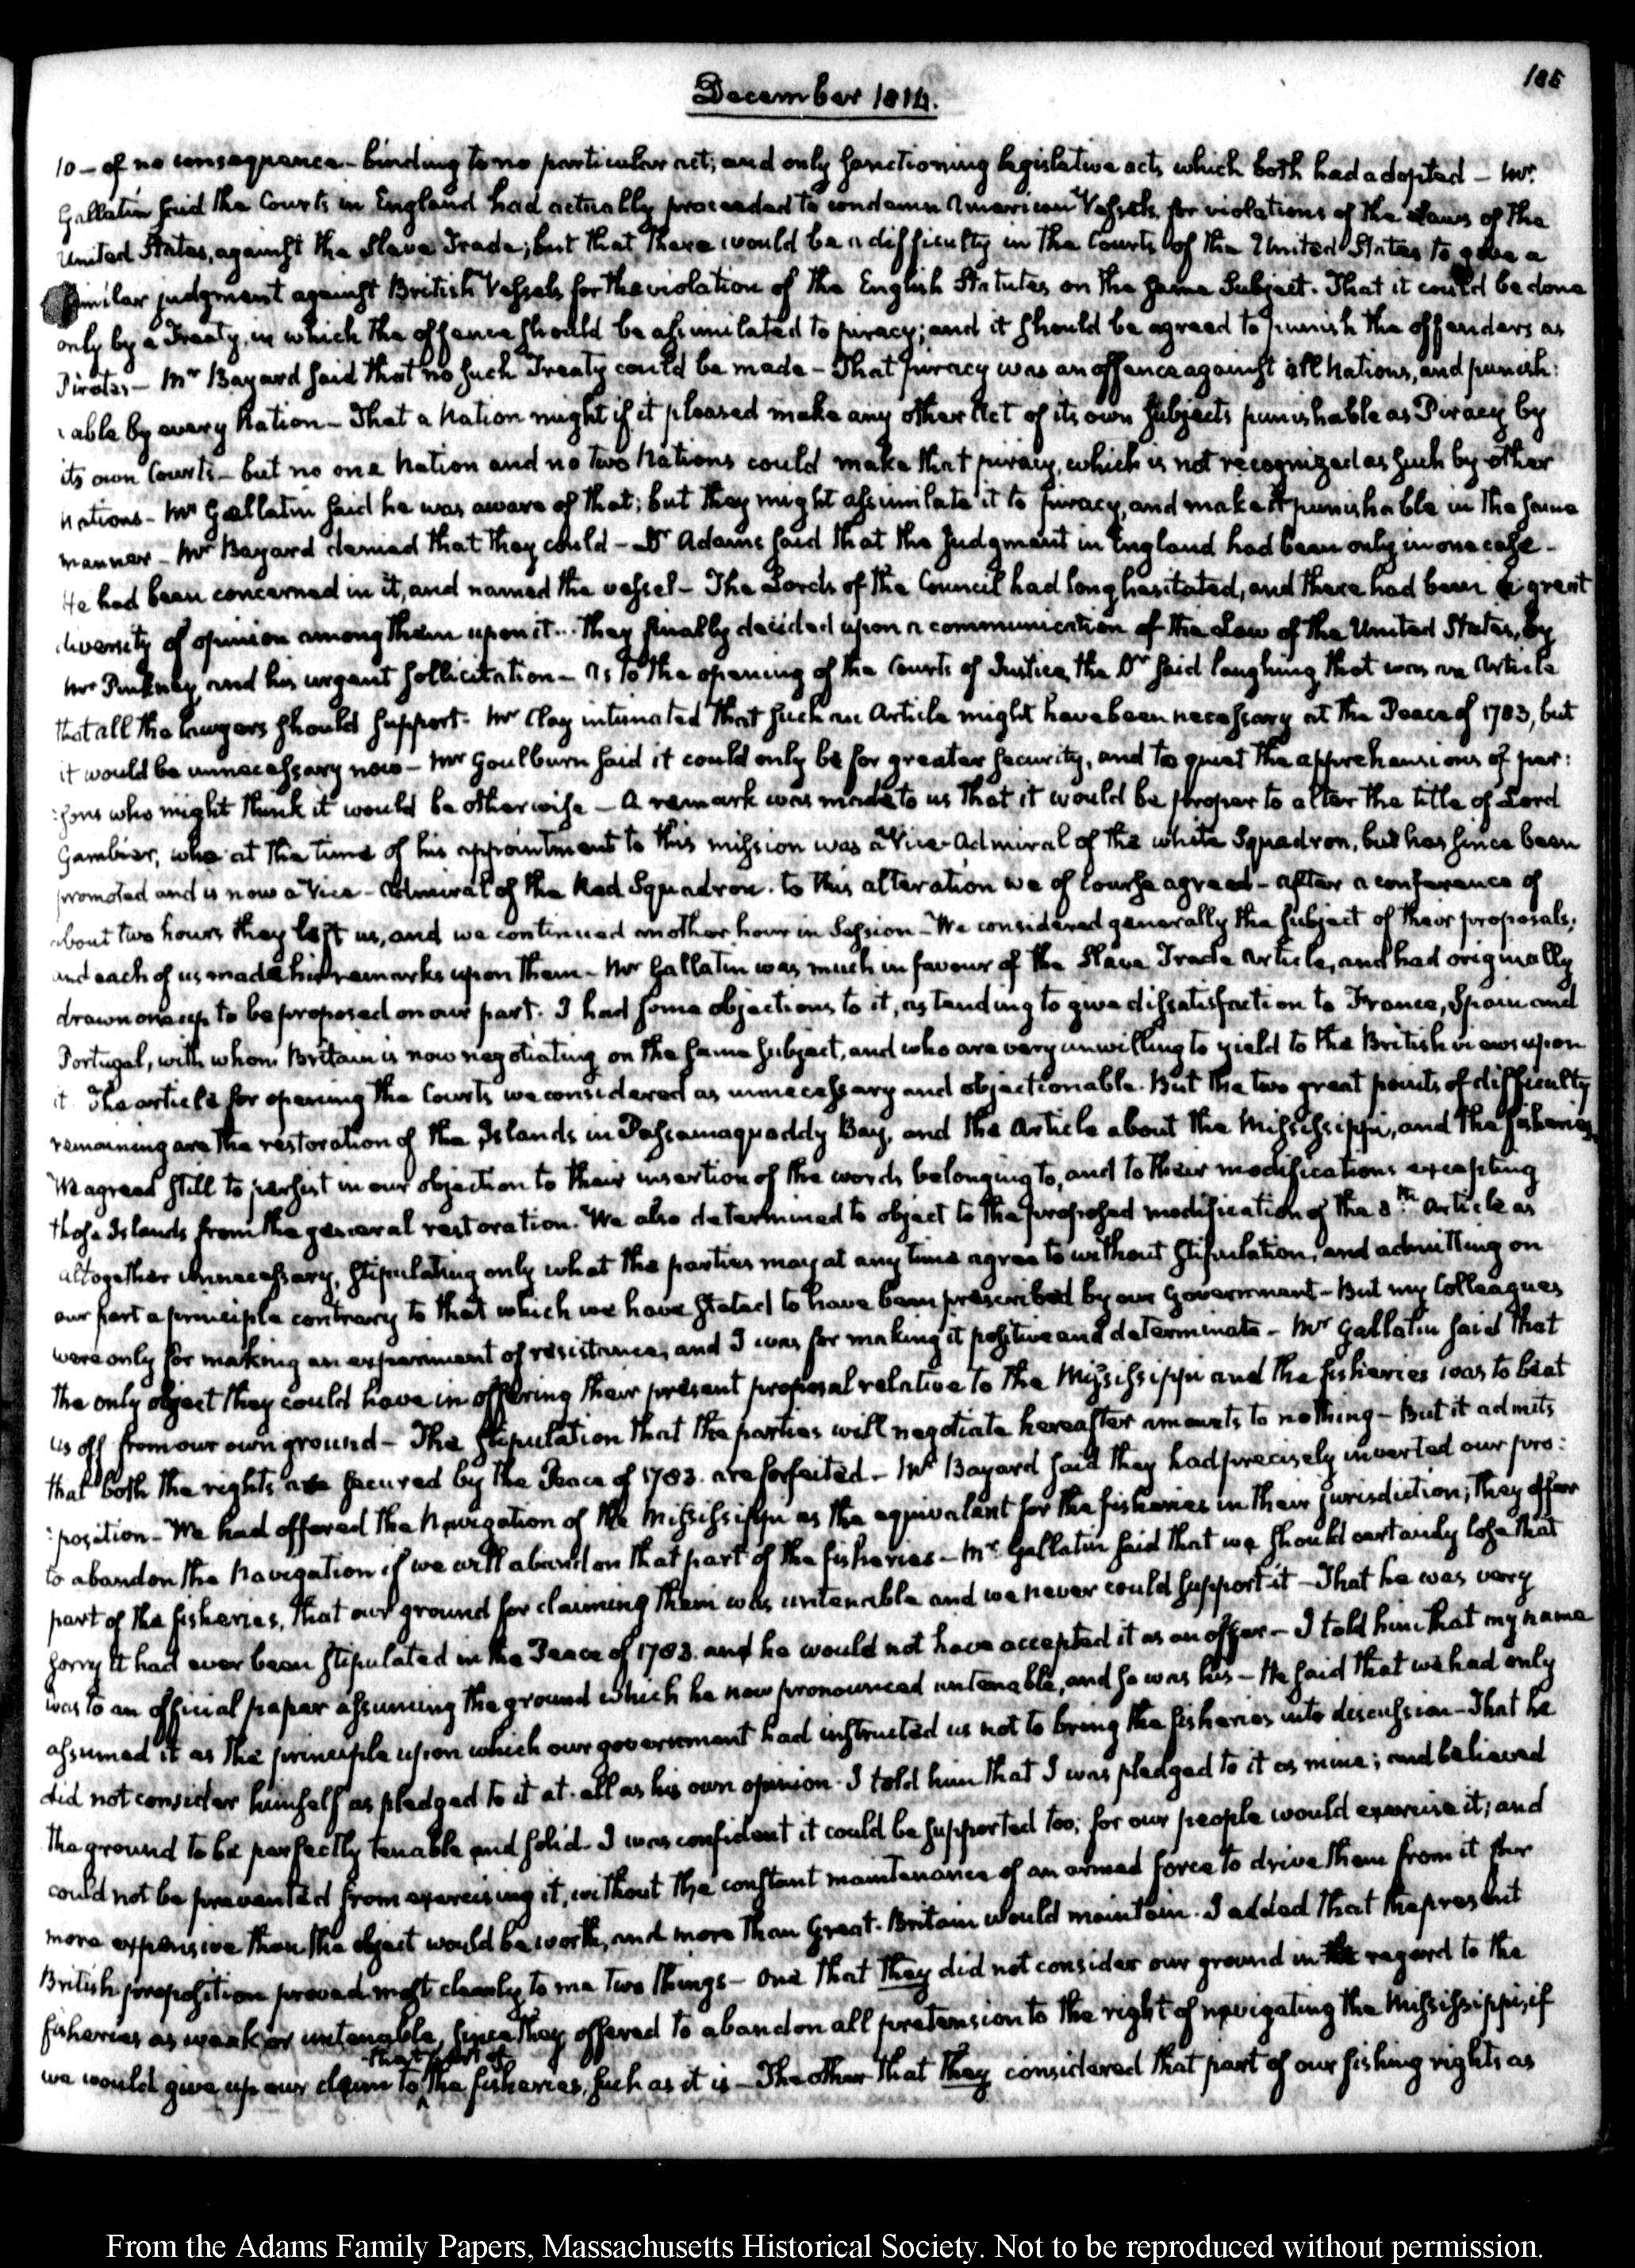 December 1814.
185
10 – of no consequence – binding to no particular act; and only sanctioning legislative acts which both had adopted – Mr.
Gallatin said the Courts in England had actually proceeded to condemn American Vessels, for violations of the Laws of the
United States, against the Slave Trade; but that there would be a difficulty in the Courts of the United States to give a
similar judgment against British Vessels for the violation of the English Statutes on the same Subject. That it could be done
only by a Treaty, in which the offence should be assimilated to piracy; and it should be agreed to punish the offenders as
Pirates – Mr Bayard said that no such Treaty could be made – That piracy was an offence against all Nations, and punish:
:able by every Nation – That a Nation might if it pleased make any other Act of its own Subjects punishable as Piracy by
its own Courts – but no one Nation and no two Nations could make that piracy, which is not recognized as such by other
Nations – Mr Gallatin said he was aware of that; but they might assimilate it to piracy, and make it punishable in the same
manner – Mr Bayard denied that they could – Dr Adams said that the Judgment in England had been only in one case –
He had been concerned in it, and named the vessel – The Lords of the Council had long hesitated, and there had been a great
diversity of opinion among them upon it – They finally decided upon a communication of the Law of the United States, by
Mr Pinkney, and his urgent sollicitation – As to the opening of the Courts of Justice, the Dr said laughing that was an Article
that all the lawyers should support. Mr Clay intimated that such an Article might have been necessary at the Peace of 1783, but
it would be unnecessary now – Mr Goulburn said it could only be for greater security, and to quiet the apprehensions of per:
:sons who might think it would be otherwise – A remark was made to us that it would be proper to alter the title of Lord
Gambier, who at the time of his appointment to this mission was a Vice-Admiral of the white Squadron, but has since been
promoted and is now a Vice-Admiral of the Red Squadron. to this alteration we of course agreed – after a conference of
about two hours they left us, and we continued another hour in Session – We considered generally the subject of their proposals;
and each of us made his remarks upon them – Mr Gallatin was much in favour of the Slave Trade Article, and had originally
drawn one up to be proposed on our part. I had some objections to it, as tending to give dissatisfaction to France, Spain and
Portugal, with whom Britain is now negotiating on the same subject, and who are very unwilling to yield to the British views upon
it. The article for opening the Courts we considered as unnecessary and objectionable. But the two great points of difficulty
remaining are the restoration of the Islands in Passamaquoddy Bay, and the Article about the Mississippi, and the fisheries.
We agreed still to persist in our objection to their insertion of the words belonging to, and to their modifications excepting
those Islands from the general restoration. We also determined to object to the proposed modification of the 8th. Article as
altogether unnecessary, stipulating only what the parties may at any time agree to without stipulation, and admitting on
our part a principle contrary to that which we have stated to have been prescribed by our Government – But my Colleagues
were only for making an experiment of resistance, and I was for making it positive and determinate – Mr Gallatin said that
the only object they could have in offering their present proposal relative to the Mississippi and the fisheries was to beat
us off from our own ground – The stipulation that the parties will negotiate hereafter amounts to nothing – But it admits
that both the rights are secured by the Peace of 1783. are forfeited – Mr Bayard said they had precisely inverted our pro:
:position – We had offered the Navigation of the Mississippi as the equivalent for the fisheries in their jurisdiction; they offer
to abandon the Navigation if we will abandon that part of the fisheries – Mr. Gallatin said that we should certainly lose that
part of the fisheries, that our ground for claiming them was untenable and we never could support it – That he was very
sorry it had ever been stipulated in the Peace of 1783. and he would not have accepted it as an offer – I told him that my name
was to an official paper assuming the ground which he now pronounced untenable, and so was his – He said that we had only
assumed it as the principle upon which our government had instructed us not to bring the fisheries into discussion – That he
did not consider himself as pledged to it at all as his own opinion. I told him that I was pledged to it as mine; and believed
the ground to be perfectly tenable and solid. I was confident it could be supported too; for our people would exercise it; and
could not be prevented from exercising it, without the constant maintenance of an armed force to drive them from it far
more expensive than the object would be worth, and more than Great-Britain would maintain. I added that the present
British proposition proved most clearly to me two things – One that they did not consider our ground in the regard to the
fisheries as weak or untenable, since they offered to abandon all pretension to the right of navigating the Mississippi, if
we would give up our claim to that part of the fisheries, such as it is – The other that they considered that part of our fishing rights as
From the Adams Family Papers, Massachusetts Historical Society. Not to be reproduced without permission.